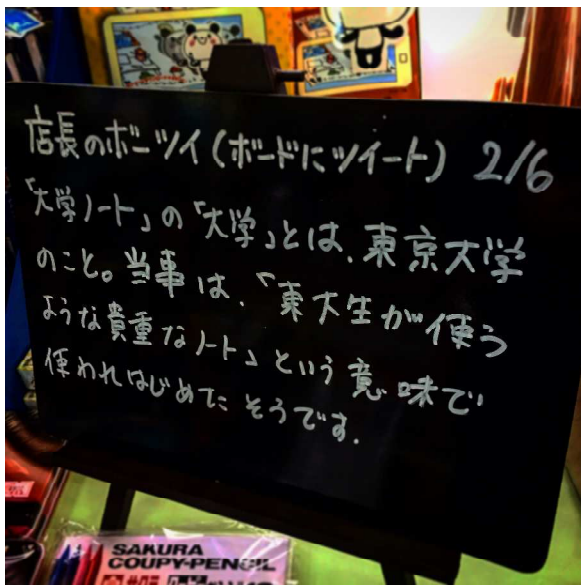 店長のボーツイ(ボードにツイート) 2/6
「大学ノート」の「大学」とは、東京大学
のこと。当事は、「東大生が使う
ような貴重なノート」という意味で
使われはじめたそうです。
SAKURA
COUPY-PENCIL